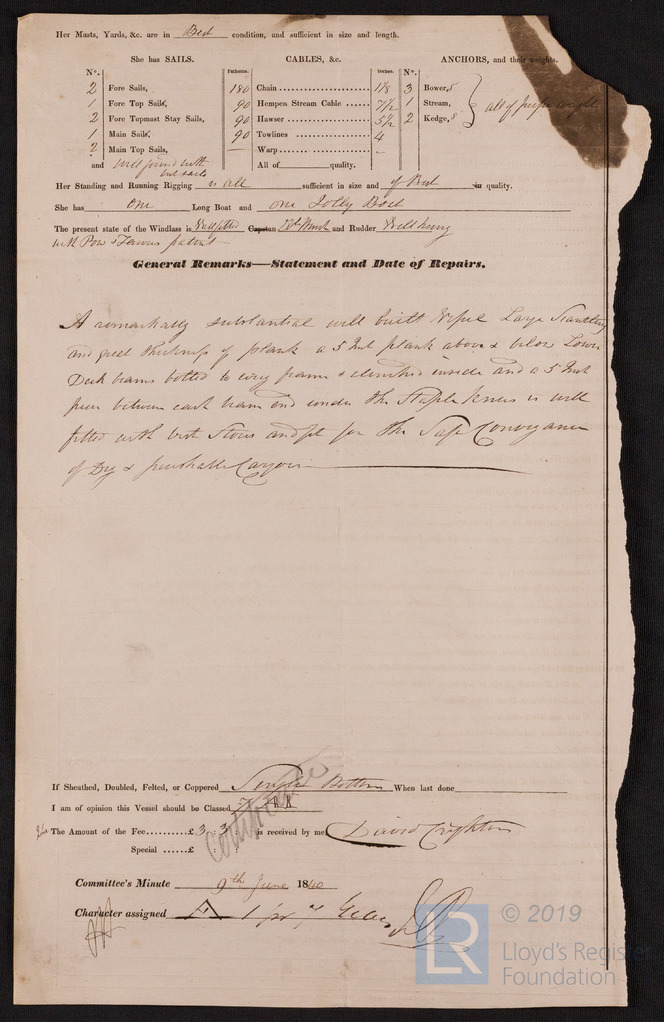 Her Masts, Yards, &c. are in Best condition, and sufficient in size and length.
She has SAILS.
CABLES, &c.
ANCHORS, and their weights.
N°.
Fathoms.
Inches.
N°.
2 Fore Sails, 180 Chain 1 1/8 3 Bower,
1 Fore Top Sails, 90 Hempen Stream Cable 7 1/2 1 Stream, all of proper weight
2 Fore Topmast Stay Sails, 90 Hawser 5 1/2 2 Kedge,
1 Main Sails, 90 Towlines 4
2 Main Top Sails, — Warp –
and well found with All of quality.
Her Standing and Running Rigging is all sufficient in size and of Best in quality.
She has One Long Boat and one Jolly Boat
The present state of the Windlass is Well fitted Capstan and Rudder Well hung
with patent
General Remarks—Statement and Date of Repairs.
A remarkably substantial well built Vessel Large Scantling
and great thickness of plank a 5 Inch plank above & below Lower
Deck beams bolted to every frame & clenched inside and a 5 Inch
piece between each beam end under the Staple knees is well
fitted with best Stores and fit for the Safe Conveyance
of Dry & perishable Cargoes
If Sheathed, Doubled, Felted, or Coppered Single Bottom When last done
I am of opinion this Vessel should be Classed
The Amount of the Fee £ 3 : 3 : is received by me, David Crighton
Special £
Committee's Minute 9th June 1840
Character assigned A 1 for 7 Years
LR © 2019
Lloyd's Register
Foundation